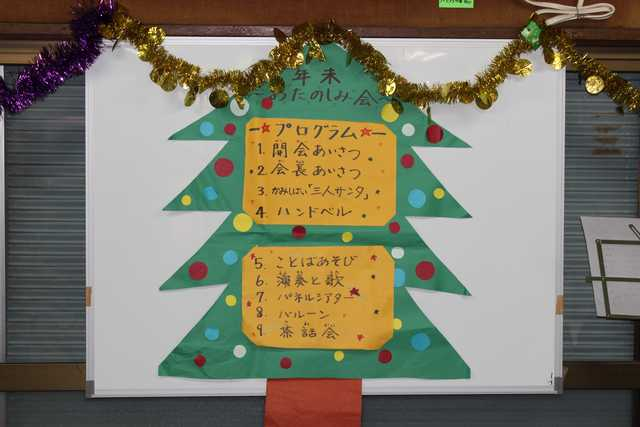 年末
〜おたのしみ会〜
プログラム
1. 開会あいさつ
2. 会長あいさつ
3. かみしばい「三人サンタ」
4. ハンドベル
5. ことばあそび
6. 演奏と歌
7. パネルシアター
8. バルーン
9. 茶話会